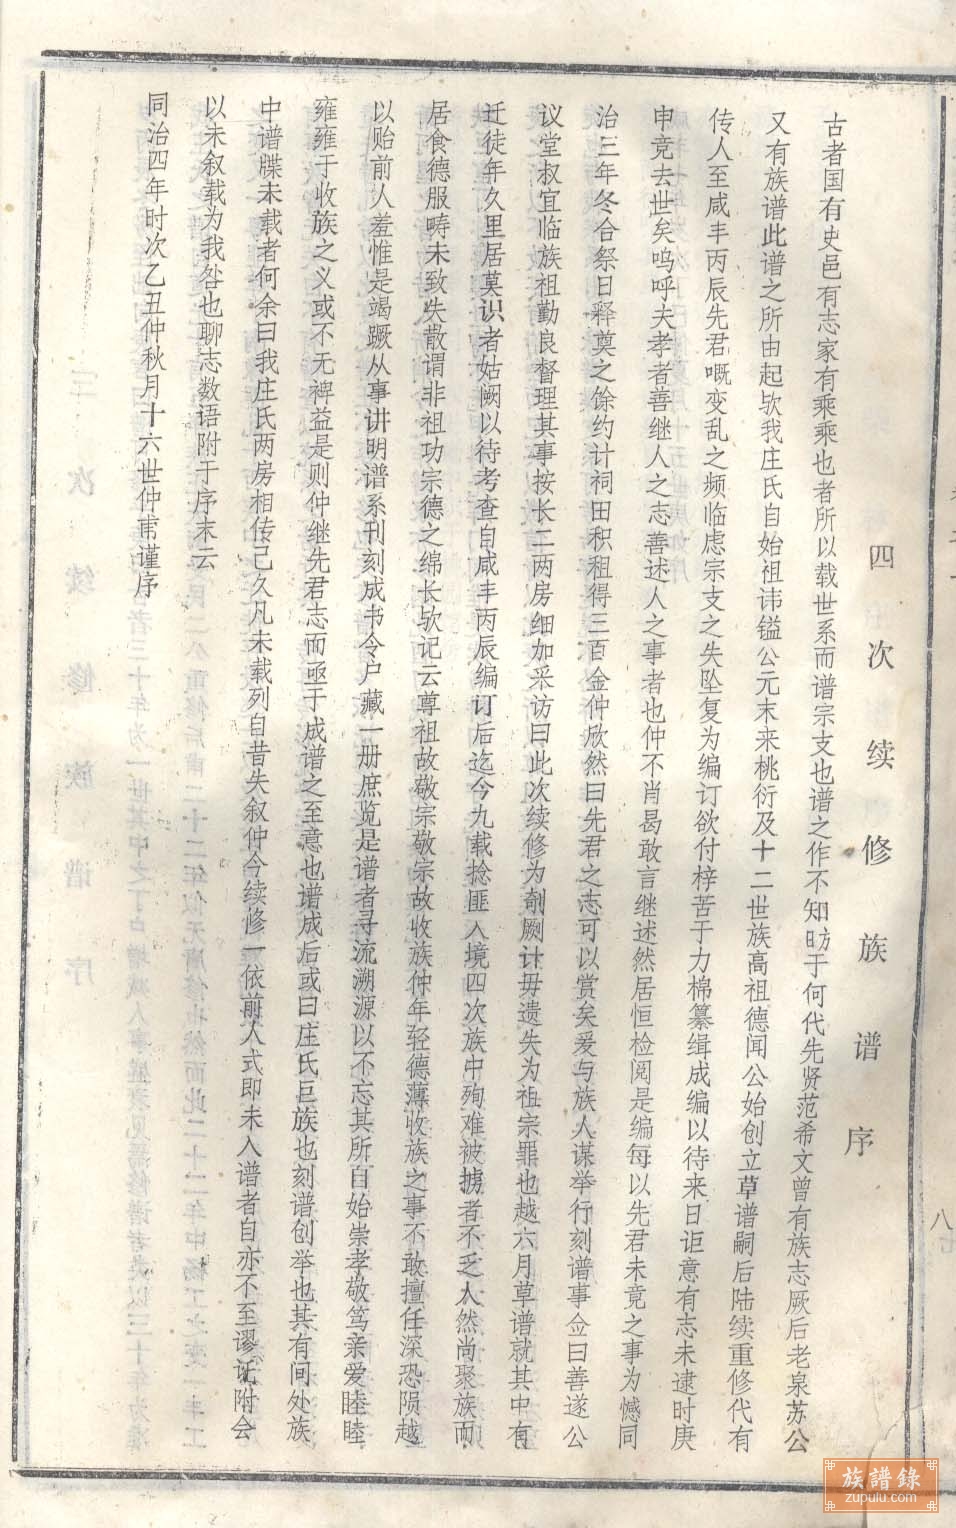 四次续修族谱序
古者国有史邑有志家有乘乘也者所以载世系而谱宗支也谱之作不知昉于何代先贤范希文曾有族志厥后老泉苏公
又有族谱此谱之所由起欤我庄氏自始祖讳镒公元末来桃衍及十二世族高祖德闻公始创立草谱嗣后陆续重修代有
传人至咸丰丙辰先君嘅变乱之频临虑宗支之失坠复为编订欲付梓苦于力棉纂缉成编以待来日讵意有志未逮时庚
申竟去世矣呜呼夫孝者善继人之志善述人之事者也仲不肖曷敢言继述然居恒检阅是编每以先君未竟之事为憾同
治三年冬合祭日释奠之馀约计祠田积租得三百金仲欣然曰先君之志可以赏矣爰与族人谋举行刻谱事佥曰善遂公
议堂叔宜临族祖勤良督理其事按长二两房细加采访曰此次续修为剞劂计毋遗失为祖宗罪也越六月草谱就其中有
迁徒年久里居莫识者姑阙以待考查自咸丰丙辰编订后迄今九载捻匪入境四次族中殉难被掳者不乏人然尚聚族而
居食德服畴未致失散谓非祖功宗德之绵长欤记云尊祖故敬宗敬宗故收族仲年轻德薄收族之事不敢擅任深恐陨越
以贻前人羞惟是竭蹶从事讲明谱系刊刻成书令户藏一册庶览是谱者寻流溯源以不忘其所自始崇孝敬笃亲爱睦睦
雍雍于收族之义或不无裨益是则仲继先君志而亟于成谱之至意也谱成后或曰庄氏巨族也刻谱创举也其有间处族
中谱牒未载者何余曰我庄氏两房相传己久凡未载列自昔失叙仲今续修一依前人式即未入谱者自亦不至谬讬附会
以未叙载为我咎也聊志数语附于序末云
同治四年时次乙丑仲秋月十六世仲甫谨序
八七
族譜錄
zupulu.com